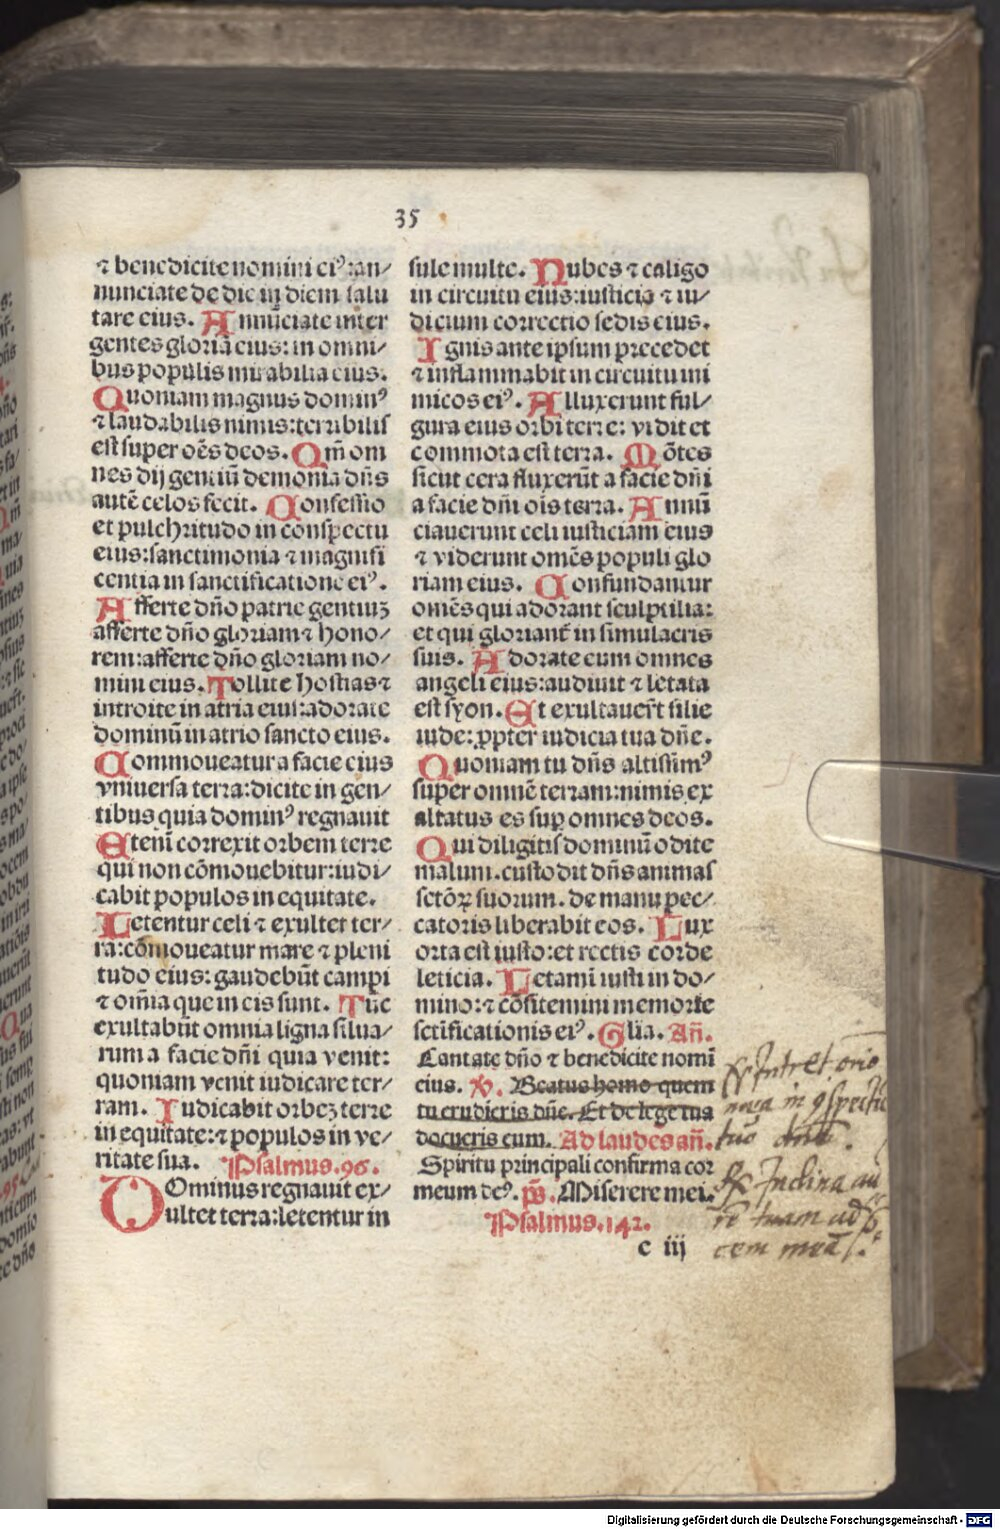 35
⁊ benedicite nomini ei⁹:an/
nunciate de die in diem salu
tare eius. Annūciate inter
gentes gloriā eius: in omni/
bus populis mirabilia eius.
Quoniam magnus domin⁹
⁊ laudabilis nimis:terribilis
est super oēs deos. Qm̄ om
nes dij gentiū demonia dn̄s
autē celos fecit. Confessio
et pulchritudo in conspectu
eius:sanctimonia ⁊ magnifi
centia in sanctificatione ei⁹.
Afferte dn̄o patrie gentiuꝫ
afferte dn̄o gloriam ⁊ hono/
rem:afferte dn̄o gloriam no/
mini eius. Tollite hostias ⁊
introite in atria eius:adorate
dominū in atrio sancto eius.
Commoueatur a facie eius
vniuersa terra:dicite in gen/
tibus quia domin⁹ regnauit
Eteni correxit orbem terre
qui non cōmouebitur:iudi/
cabit populos in equitate.
Letentur celi ⁊ exultet ter/
ra:cōmoueatur mare ⁊ pleni
tudo eius: gaudebūt campi
⁊ om̄ia que in eis sunt. Tūc
exultabūt omnia ligna silua/
rum a facie dn̄i quia venit:
quoniam venit iudicare ter/
ram. Iudicabit orbeꝫ terre
in equitate:⁊ populos in ve/
ritate sua. Psalmus.96.
DOminus regnauit ex/
ultet terra:letentur in
sule multe. Nubes ⁊ caligo
in circuitu eius:iusticia ⁊ iu/
dicium correctio sedis eius.
Ignis ante ipsum precedet
⁊ inflammabit in circuitu ini
micos ei⁹. Alluxerunt ful/
gura eius orbi terre: vidit et
commota est terra. Mōtes
sicut cera fluxerūt a facie dn̄i
a facie dn̄i ois terra. Annū
ciauerunt celi iusticiam eius
⁊ viderunt omēs populi glo
riam eius. Confundantur
omēs qui adorant sculptilia:
et qui gloriant̄ in simulacris
suis. Adorate eum omnes
angeli eius:audiuit ⁊ letata
est syon. Et exultauer̄t filie
iude: ꝓpter iudicia tua dn̄e.
Quoniam tu dn̄s altissim⁹
super omnē terram:nimis ex
altatus es suꝑ omnes deos.
Qui diligitis dominū odite
malum.custodit dn̄s animas
sctōꝝ suorum. de manu pec/
catoris liberabit eos. Lux
orta est iusto:et rectis corde
leticia. Letamī iusti in do/
mino:⁊ cōfitemini memorie
sctificationis ei⁹. Glia. Añ.
Cantate dn̄o ⁊ benedicite nomī
eius. ℣. Beatus homo quem
tu erudieris dn̄e. Et de lege tua
docueris eum. Ad laudes añ.
Spiritu principali confirma cor
meum de⁹. p̄s. Miserere mei.
Psalmus.142.
c iij
℣ Intret orio
mea in ꝯspectu
tuo dn̄e.
℟ Inclina au
rē tuam ad p
cem meā
Digitalisierung gefördert durch die Deutsche Forschungsgemeinschaft - DFG